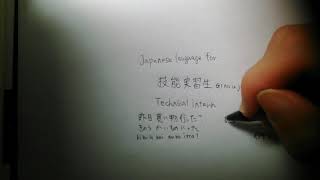 Japanese language for
技能実習生 Ginou J
Technical intern
昨日 買い物 行った?
きのう かいもの いった
kinou kai mono itta?